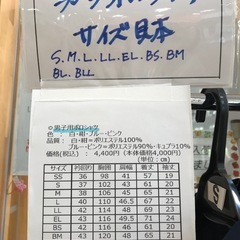 サイズ見本
S.M.L.LL.EL.BS.BM
BL.BLL
◎男子用ポロシャツ
色 : 白・紺・ブルー・ピンク
品質 : 白・紺=ポリエステル100%
ブルー・ピンク=ポリエステル90%・キュプラ10%
価格(税込) : 4,400円(本体価格4,000円)
(単位:cm)
サイズ 衿回り 胸囲 肩幅 着丈 袖丈
SS 36 98 41 57 19
S 37 102 43 61 20
M 38 106 45 65 20
L 40 110 46.5 67 21
LL 42 114 48 67 21
EL 43 116 49.5 67 21
BS 41 112 45 61 20
BM 42 116 47 65 21